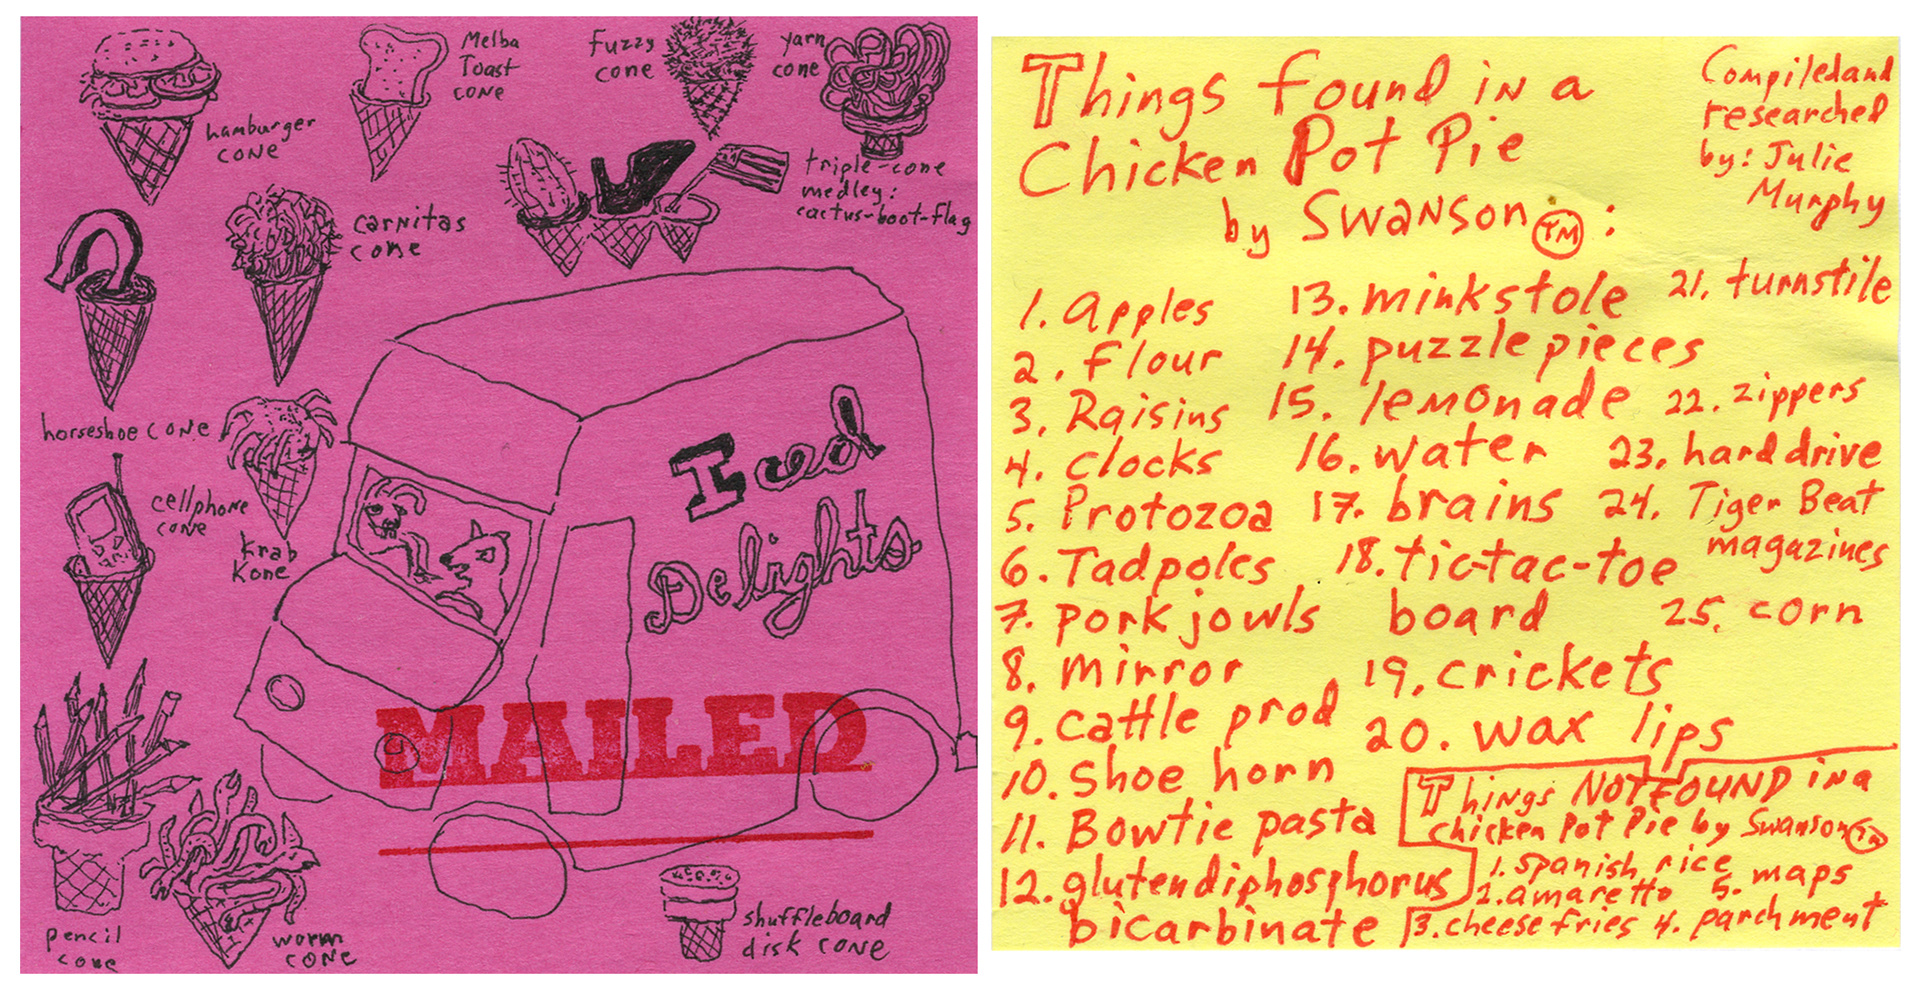 hamburger
cone
Melba
Toast
cone
Fuzzy
cone
yarn
cone
triple-cone
medley:
cactus-boot-flag
carnitas
cone
horseshoe cone
cellphone
cone
Krab
Kone
Iced
Delights
MAILED
pencil
cone
worm
cone
shuffleboard
disk cone
Things found in a
Chicken Pot Pie
by Swanson TM :
Compiled and
researched
by: Julie
Murphy
1. Apples
2. flour
3. Raisins
4. clocks
5. Protozoa
6. Tadpoles
7. pork jowls
8. mirror
9. cattle prod
10. shoe horn
11. Bowtie pasta
12. glutendiphosphorus
bicarbinate
13. mink stole
14. puzzle pieces
15. lemonade
16. water
17. brains
18. tic-tac-toe
board
19. crickets
20. wax lips
21. turnstile
22. zippers
23. hard drive
24. Tiger Beat
magazines
25. corn
Things NOT FOUND in a
chicken Pot Pie by Swanson TM
1. spanish rice
2. amaretto
3. cheese fries
4. parchment
5. maps